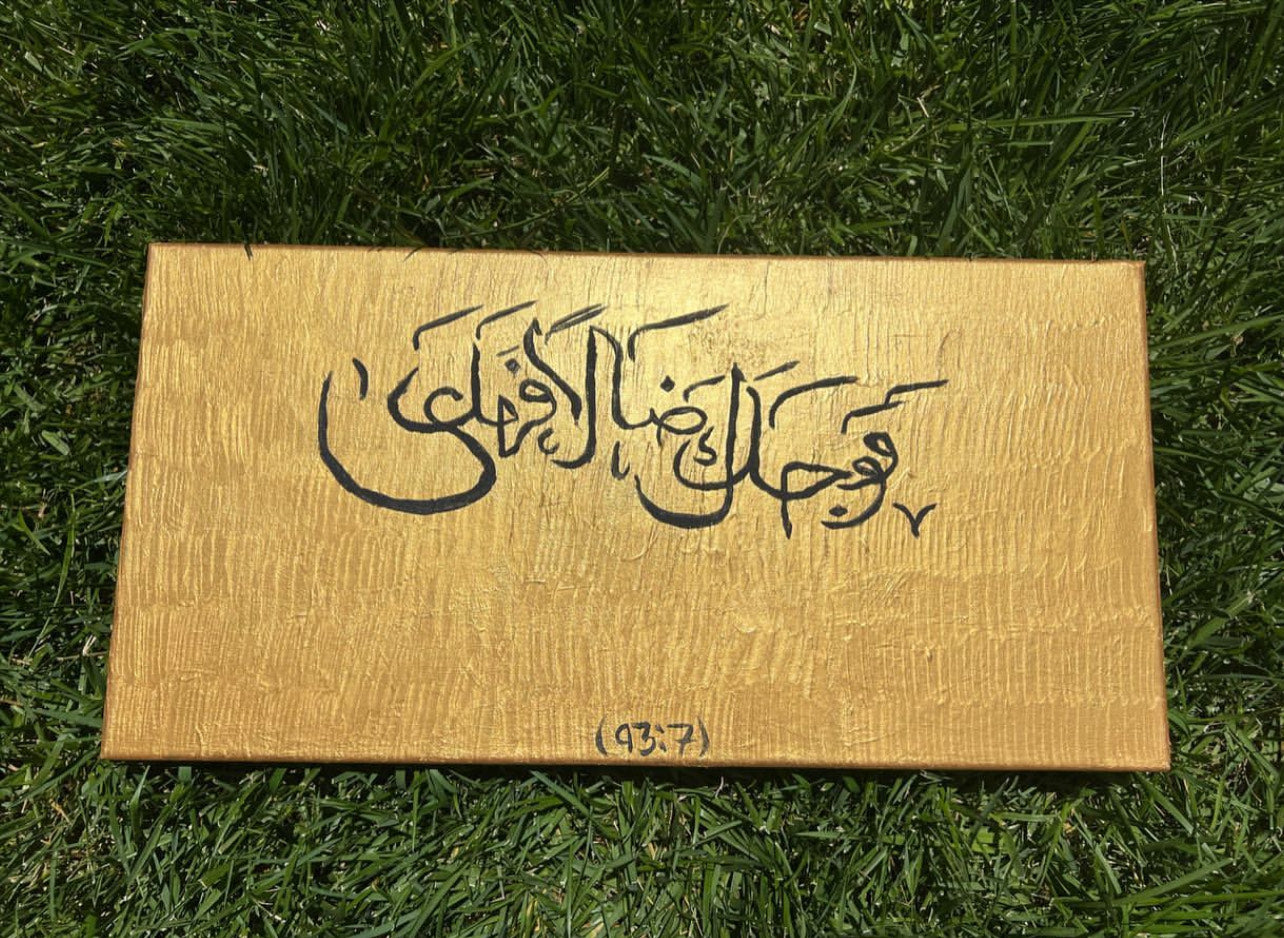 وَوَجَدَكَ ضَالًا فَهَدَى
(93:7)